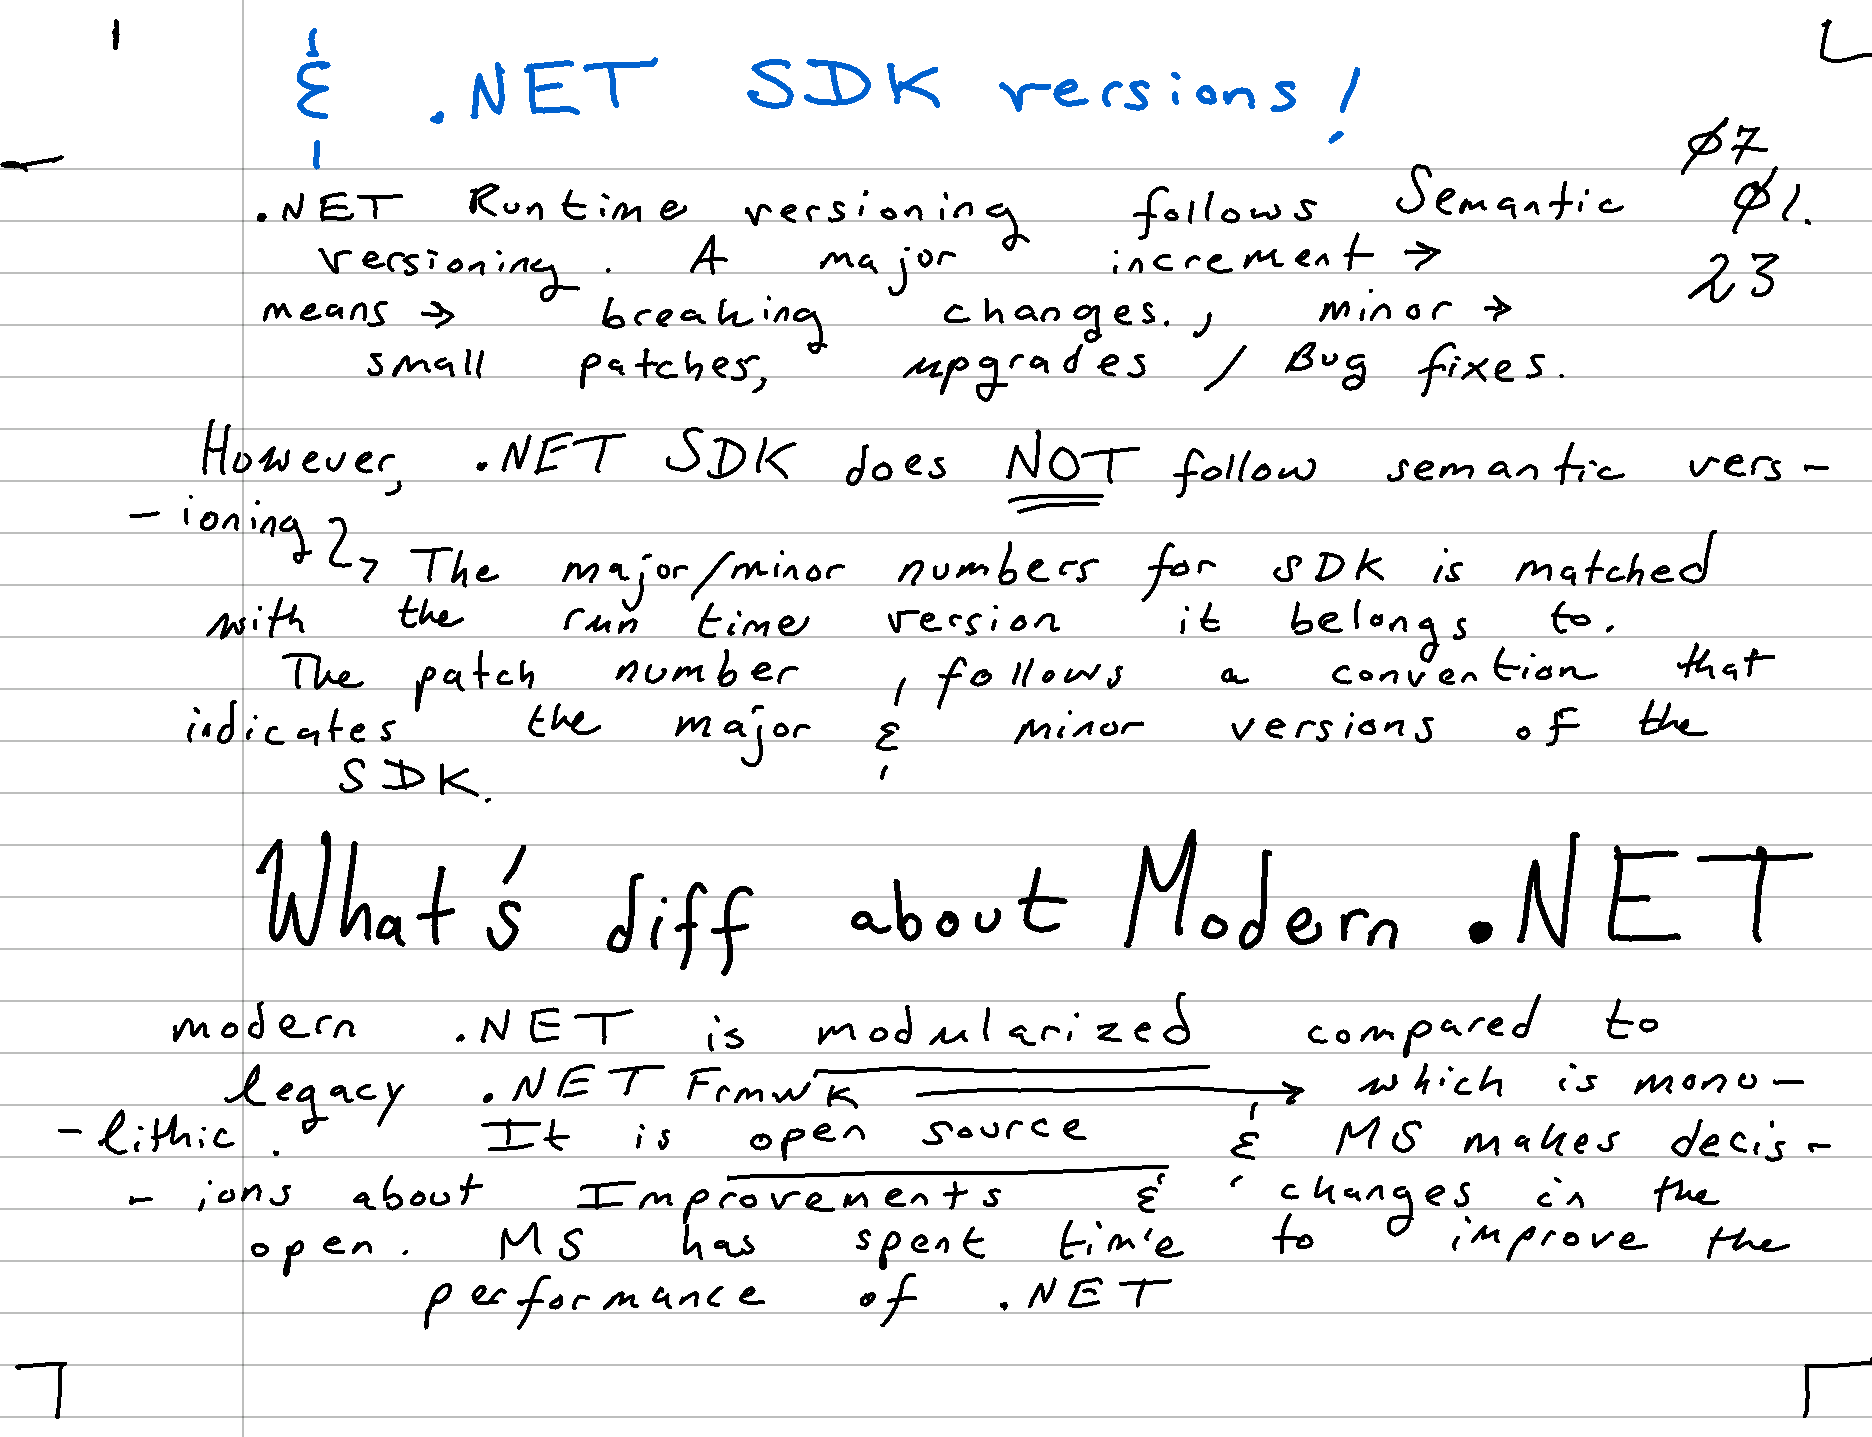 & .NET SDK versions!
07
.NET Runtime versioning follows Semantic 01.
versioning. A major increment → 23
means → breaking changes., minor →
small patches, upgrades / Bug fixes.
However, .NET SDK does NOT follow semantic vers-
-ioning
The major/minor numbers for SDK is matched
with the run time version it belongs to.
The patch number, follows a convention that
indicates the major & minor versions of the
SDK.
What's diff about Modern .NET
modern .NET is modularized compared to
legacy .NET Frmwk → which is mono-
-lithic. It is open source & MS makes decis-
-ions about Improvements & changes in the
open. MS has spent time to improve the
performance of .NET